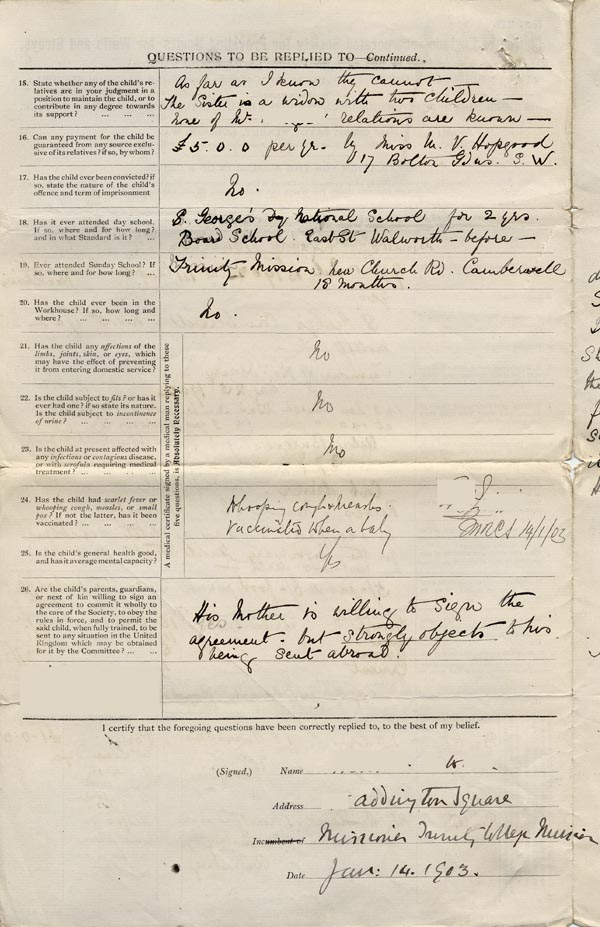 QUESTIONS TO BE REPLIED TO—Continued.
15. State whether any of the child's re-
latives are in your judgment in a
position to maintain the child, or to
contribute in any degree towards
its support? ... ... ...
As far as I know they cannot
The Sister is a widow with two children —
none of Mr. relations are known —
16. Can any payment for the child be
guaranteed from any source exclu-
sive of its relatives? if so, by whom?
£5.0.0 per yr. by Miss M. V. Hopgood
17 Bolton Gdns. S.W.
17. Has the child ever been convicted? if
so, state the nature of the child's
offence and term of imprisonment
No.
18. Has it ever attended day school.
If so, where and for how long?
and in what Standard is it? ...
S. George's Day National School for 2 yrs.
Board School East St Walworth – before –
19. Ever attended Sunday School? If
so, where and for how long? ...
Trinity Mission, New Church Rd. Camberwell
18 months.
20. Has the child ever been in the
Workhouse? If so, how long and
where? ... ... ... ...
No.
A medical certificate signed by a medical man replying to these
five questions, is Absolutely Necessary.
21. Has the child any affections of the
limbs, joints, skin, or eyes, which
may have the effect of preventing
it from entering domestic service?
No
22. Is the child subject to fits? or has it
ever had one? if so state its nature.
Is the child subject to incontinence
of urine? ... ... ... ...
No
23. Is the child at present affected with
any infectious or contagious disease,
or with scrofula requiring medical
treatment? ... ... ... ...
No
24. Has the child had scarlet fever or
whooping cough, measles, or small
pox? If not the latter, has it been
vaccinated? ... ... ... ...
Whooping cough & measles.
Vaccinated when a baby
MRCS 14/1/03
25. Is the child's general health good,
and has it average mental capacity?
Yes
26. Are the child's parents, guardians,
or next of kin willing to sign an
agreement to commit it wholly to
the care of the Society, to obey the
rules in force, and to permit the
said child, when fully trained, to be
sent to any situation in the United
Kingdom which may be obtained
for it by the Committee? ... ...
His Mother is willing to sign the
agreement – but strongly objects to his
being sent abroad.
I certify that the foregoing questions have been correctly replied to, to the best of my belief.
(Signed.) Name
Address Addington Square
Incumbent of Missioner Trinity College Mission
Date Jan: 14. 1903.